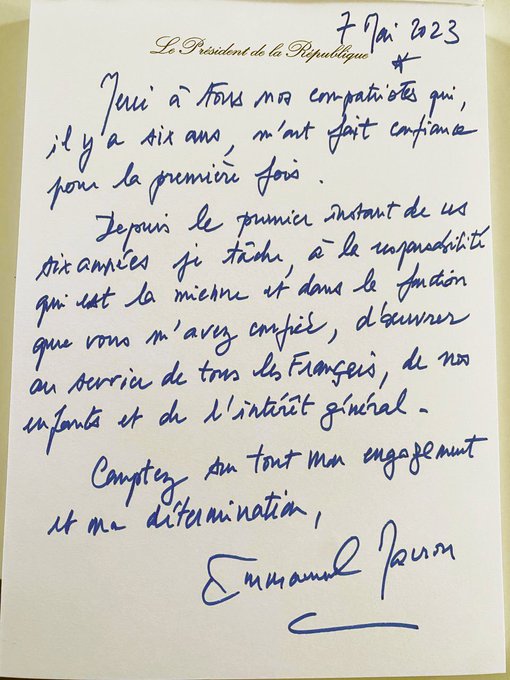 7 Mai 2023
Le Président de la République
Merci à tous nos compatriotes qui,
il y a six ans, m'ont fait confiance
pour la première fois.
Depuis le premier instant de ces
six années je tâche, à la responsabilité
qui est la mienne et dans la fonction
que vous m'avez confiée, d'œuvrer
au service de tous les Français, de nos
enfants et de l'intérêt général.
Comptez sur tout mon engagement
et ma détermination,
Emmanuel Macron